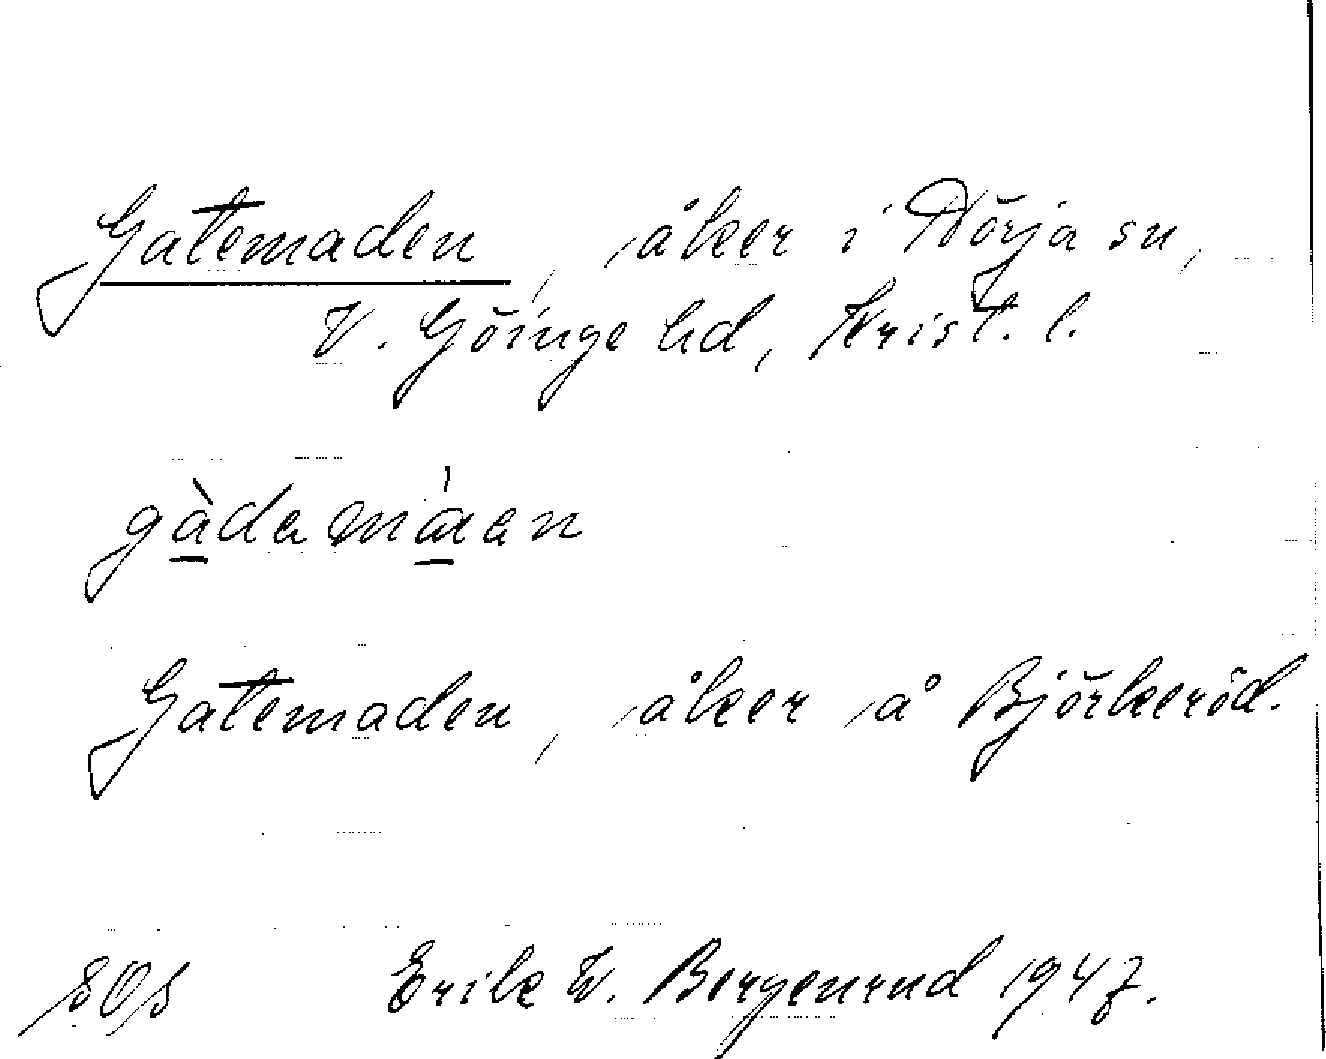 Gatemaden, åker i Nörja sn,
V. Göinge hd, Krist. l.
gàdamáen
Gatemaden, åker å Björkeröd.
SOS Erik W. Bergenrud 1947.